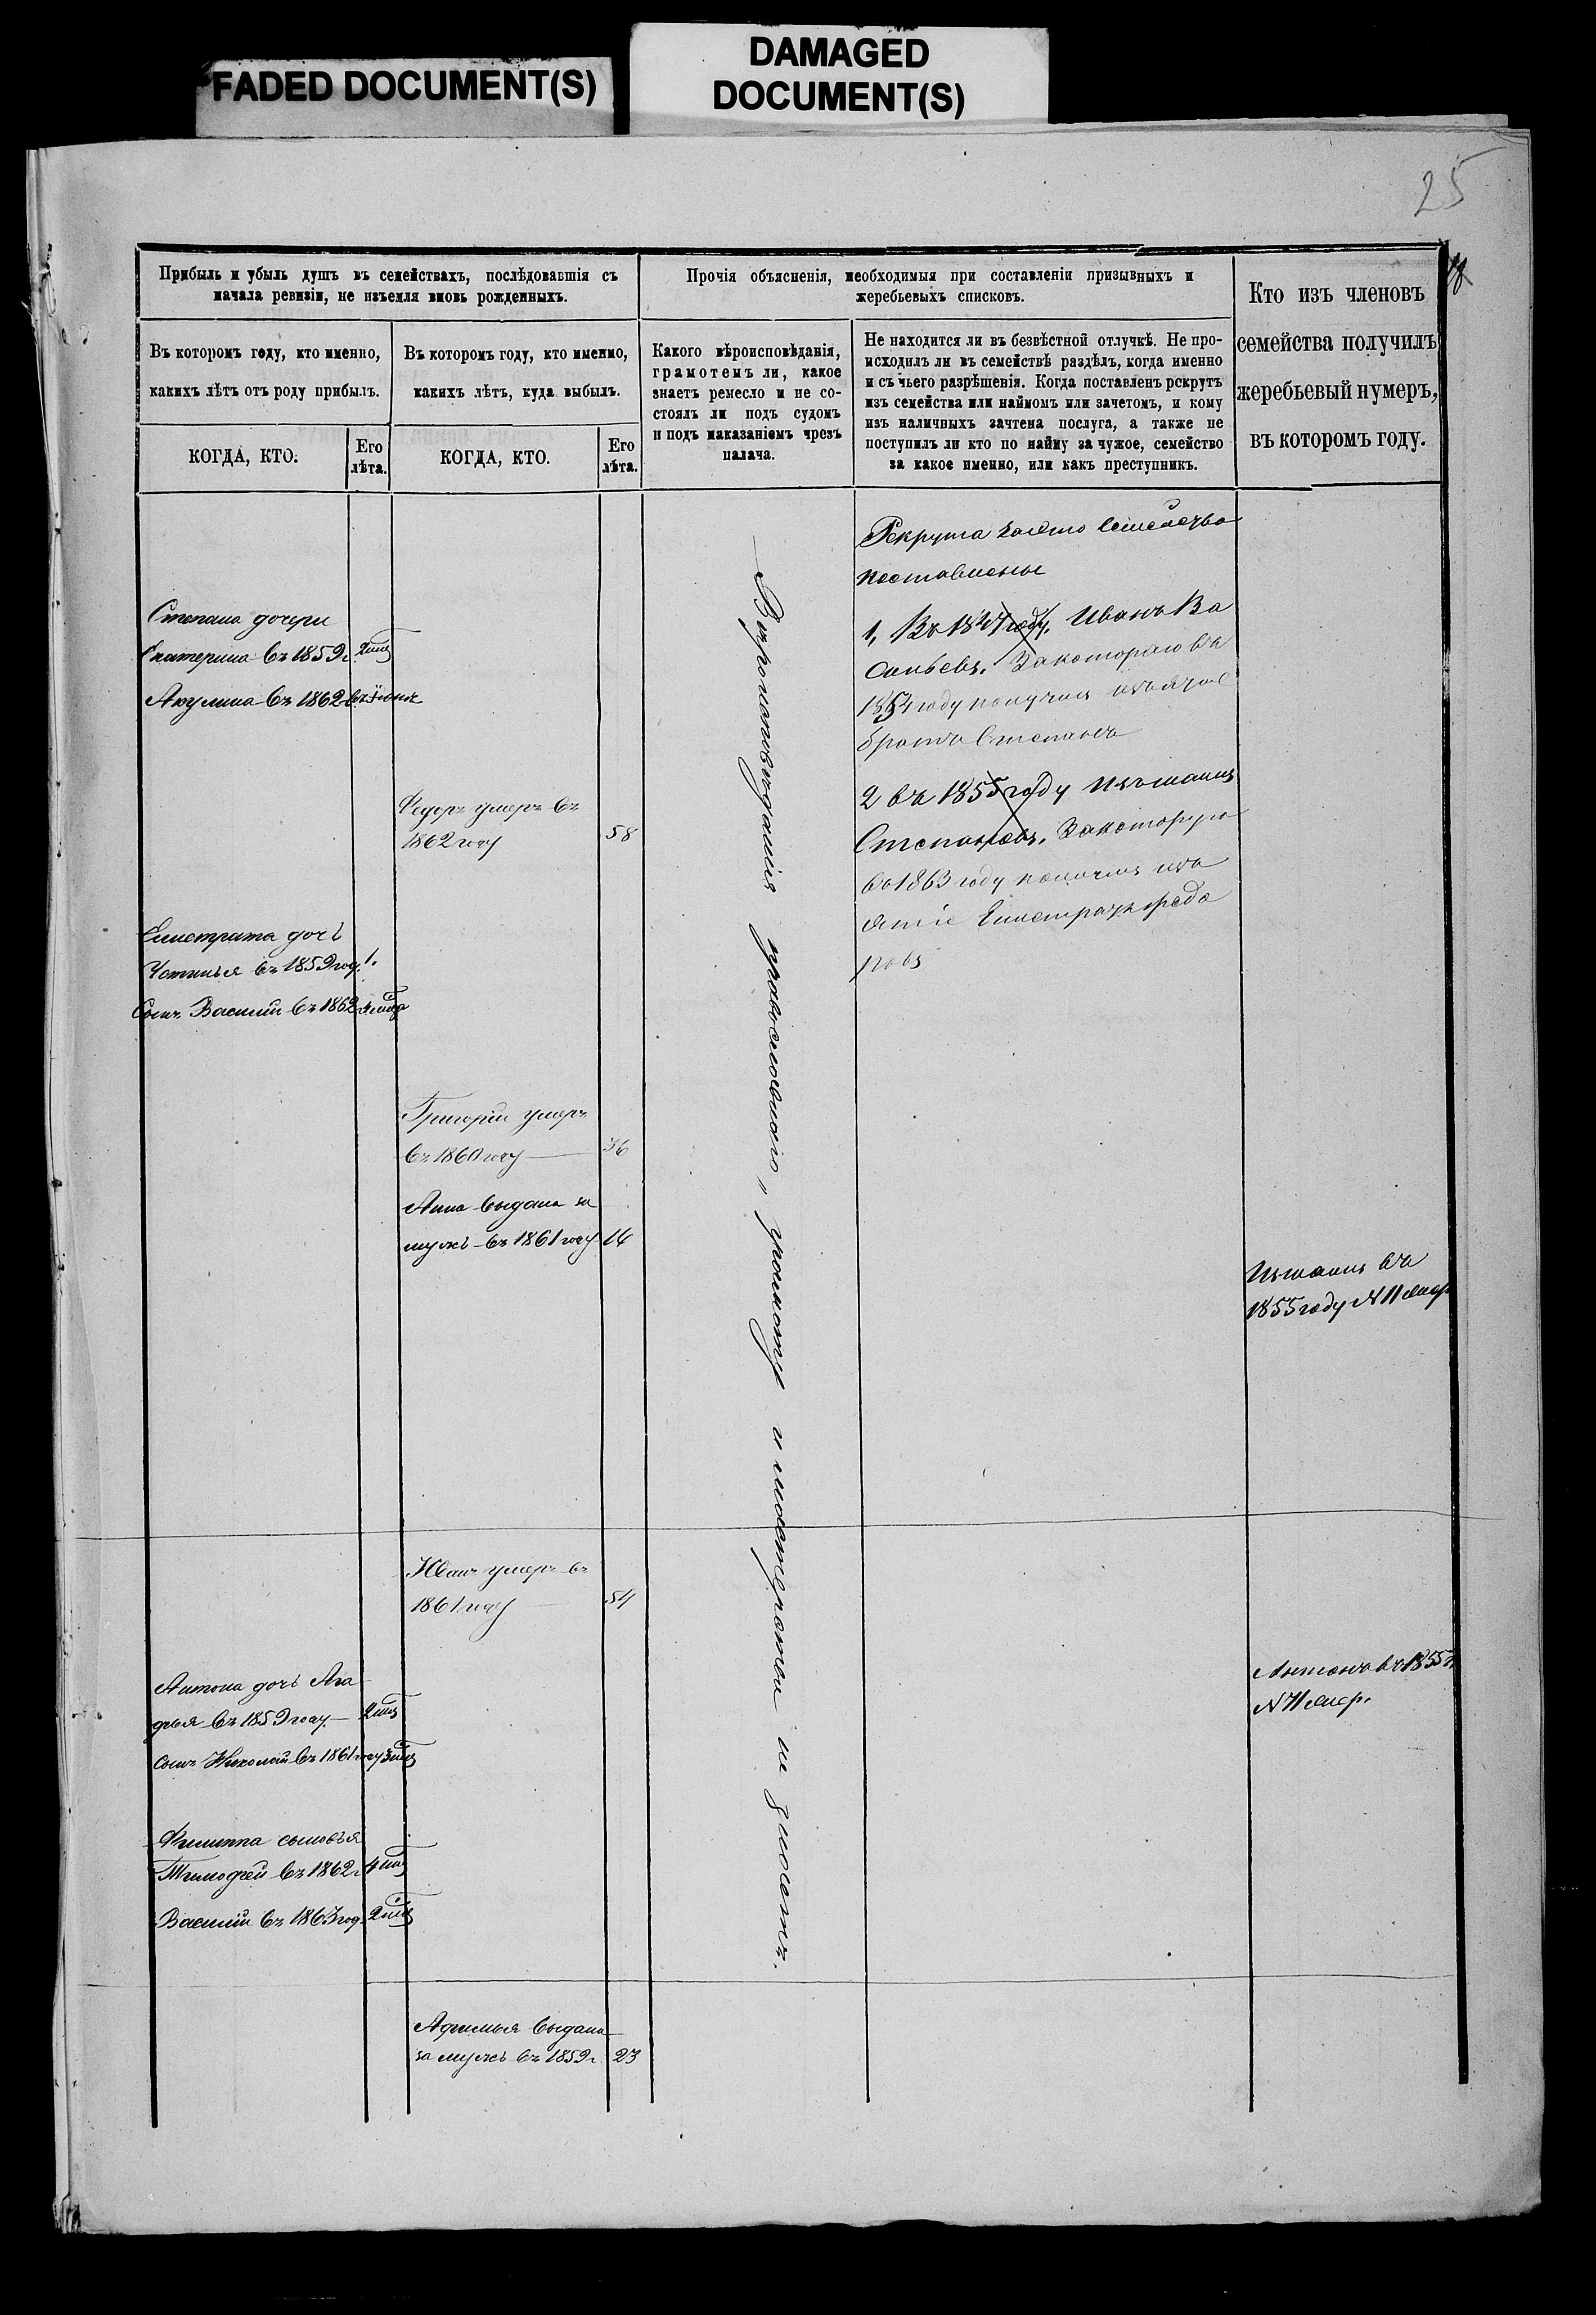 FADED DOCUMENT(S)
DAMAGED
DOCUMENT(S)
25
Прибыль и убыль душъ въ семействахъ, послѣдовавшія съ
начала ревизіи, не изъемля вновь рожденныхъ.
Въ которомъ году, кто именно,
какихъ лѣтъ отъ роду прибылъ.
КОГДА, КТО.
Его
лѣта.
Въ которомъ году, кто именно,
какихъ лѣтъ, куда выбылъ.
КОГДА, КТО.
Его
лѣта.
Прочія объясненія, необходимыя при составленіи призывныхъ и
жеребьевыхъ списковъ.
Какого вѣроисповѣданія,
грамотемъ ли, какое
знаетъ ремесло и не со-
стоялъ ли подъ судомъ
и подъ наказаніемъ чрезъ
палача.
Не находится ли въ безвѣстной отлучкѣ. Не про-
исходилъ ли въ семействѣ раздѣлъ, когда именно
и съ чьего разрѣшенія. Когда поставленъ рскрутъ
изъ семейства или наймомъ или зачетомъ, и кому
изъ наличныхъ зачтена послуга, а также не
поступилъ ли кто по найму за чужое, семейство
за какое именно, или какъ преступникъ.
Кто изъ членовъ
семейства получилъ
жеребьевый нумеръ,
въ которомъ году.
Степана дочери
Екатерина въ 1859 г.
Акулина въ 1862
Федоръ умеръ въ
1862 году 58
Елистрата дочь
Устинья въ 1859 год. 1.
Сынъ Василий въ 1862
Григорій умеръ
въ 1860 году 36
Анна выдана за
мужъ въ 1861 году 16
Иванъ умеръ въ
1861 году 54
Антона дочь Ага
фья въ 1859 году
сынъ Николай въ 1861 году
Филиппа сыновья
Тимофей въ 1862 г
Василій въ 1863 год.
Афимья выдана
за мужъ въ 1859 г. 23
Вѣроисповѣданія православнаго, грамоту и мастерства не знаютъ.
Рекрута
поставлены
1, Въ году, Иванъ Ва
сильевъ. За котораго въ
1854 году получилъ
братъ Степанъ
2 въ 1855 году
Степановъ. За которую
въ 1863 году получилъ изъ
ятіе Елистратъ Федо
ровъ
въ
1855 году N 11
Антонъ въ 1855 г
N 11